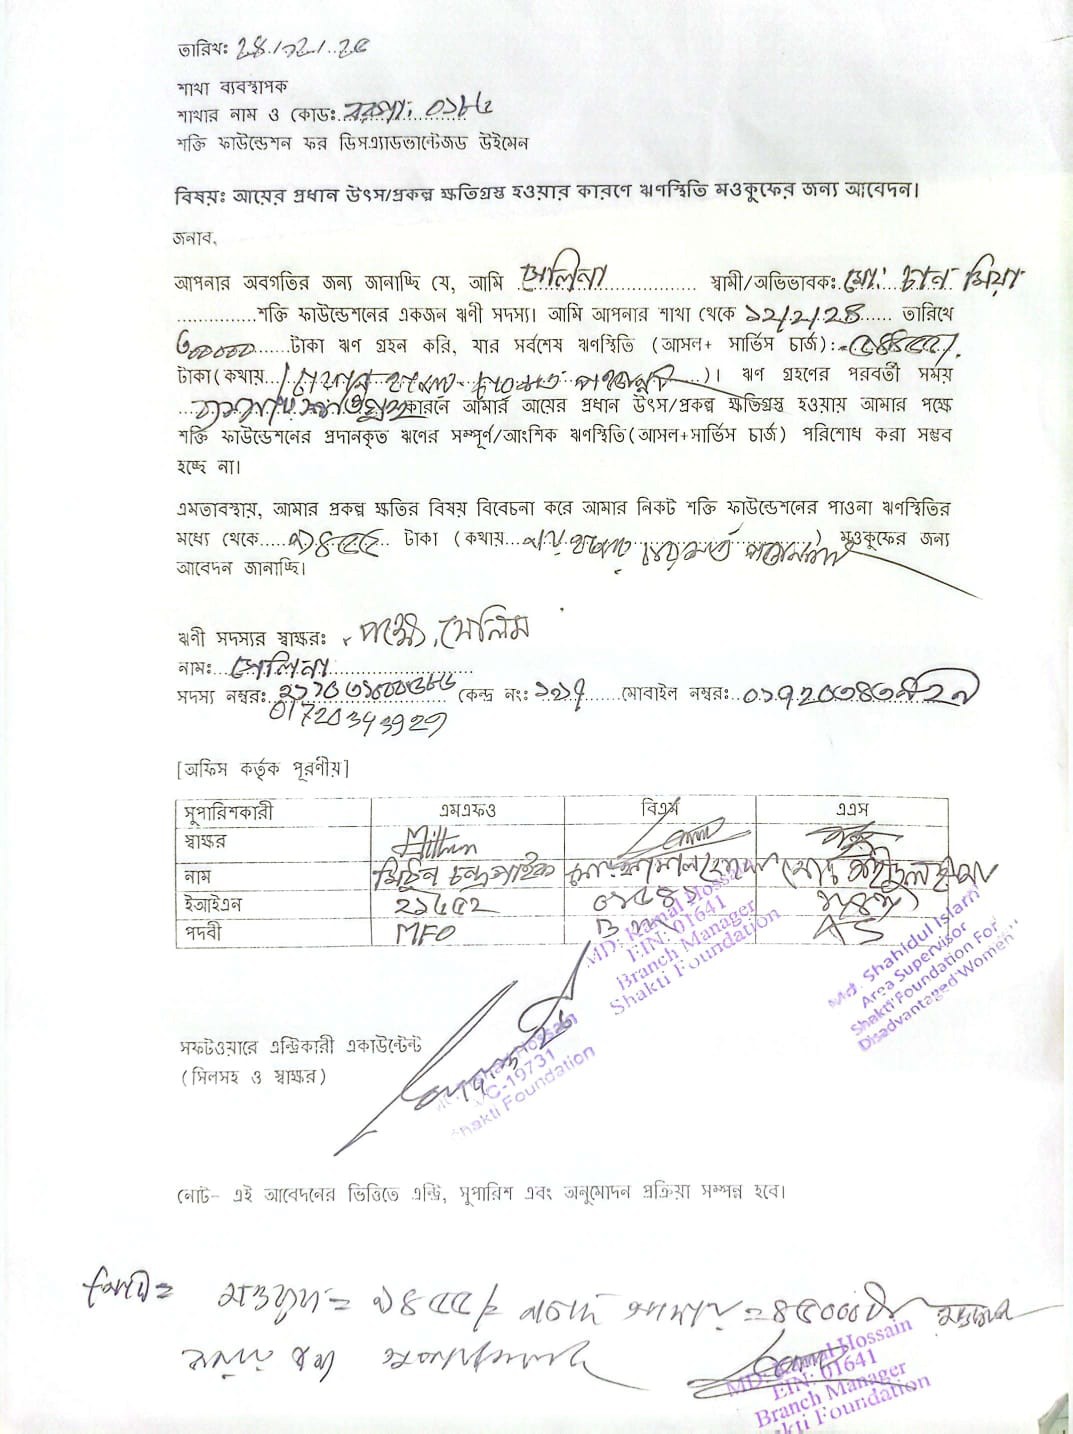 তারিখঃ
শাখা ব্যবস্থাপক
শাখার নাম ও কোডঃ
শক্তি ফাউন্ডেশন ফর ডিসএ্যাডভান্টেজড উইমেন
বিষয়ঃ আয়ের প্রধান উৎস/প্রকল্প ক্ষতিগ্রস্ত হওয়ার কারণে ঋণস্থিতি মওকুফের জন্য আবেদন।
জনাব,
আপনার অবগতির জন্য জানাচ্ছি যে, আমি সেলিনা স্বামী/অভিভাবকঃ মোঃ চান মিয়া
শক্তি ফাউন্ডেশনের একজন ঋণী সদস্য। আমি আপনার শাখা থেকে ১২/২/২৪ তারিখে
৬০০০০ টাকা ঋণ গ্রহন করি, যার সর্বশেষ ঋণস্থিতি (আসল+ সার্ভিস চার্জ):
টাকা(কথায় )। ঋণ গ্রহণের পরবর্তী সময়
কারনে আমার আয়ের প্রধান উৎস/প্রকল্প ক্ষতিগ্রস্ত হওয়ায় আমার পক্ষে
শক্তি ফাউন্ডেশনের প্রদানকৃত ঋণের সম্পূর্ণ/আংশিক ঋণস্থিতি(আসল+সার্ভিস চার্জ) পরিশোধ করা সম্ভব
হচ্ছে না।
এমতাবস্থায়, আমার প্রকল্প ক্ষতির বিষয় বিবেচনা করে আমার নিকট শক্তি ফাউন্ডেশনের পাওনা ঋণস্থিতির
মধ্যে থেকে ৯৪৫৫ টাকা (কথায় নয় হাজার চারশত পঞ্চান্ন) মওকুফের জন্য
আবেদন জানাচ্ছি।
ঋণী সদস্যর স্বাক্ষরঃ পক্ষে, সেলিম
নামঃ সেলিনা
সদস্য নম্বরঃ কেন্দ্র নংঃ ১১৭ মোবাইল নম্বরঃ ০১৭২০৩৪৩৯২৭
01720343927
[অফিস কর্তৃক পূরণীয়]
সুপারিশকারী এমএফও বিএম এএস
স্বাক্ষর Mithun
নাম মিঠুন চন্দ্র পাইক মোঃ কামাল হোসেন মোঃ শহীদুল ইসলাম
ইআইএন ২১৬৫২ ০১৬৪১
পদবী MFO BM AS
MD: Kamal Hossain
EIN: 01641
Branch Manager
Shakti Foundation
Md. Shahidul Islam
Area Supervisor
Shakti Foundation For
Disadvantaged Women
সফটওয়ারে এন্ট্রিকারী একাউন্টেন্ট
(সিলসহ ও স্বাক্ষর)
Hossain
-19731
Shakti Foundation
নোট- এই আবেদনের ভিত্তিতে এন্ট্রি, সুপারিশ এবং অনুমোদন প্রক্রিয়া সম্পন্ন হবে।
মওকুফ = ৯৪৫৫/= নগদ আদায় = ৪৫০০০
MD: Kamal Hossain
EIN: 01641
Branch Manager
Shakti Foundation